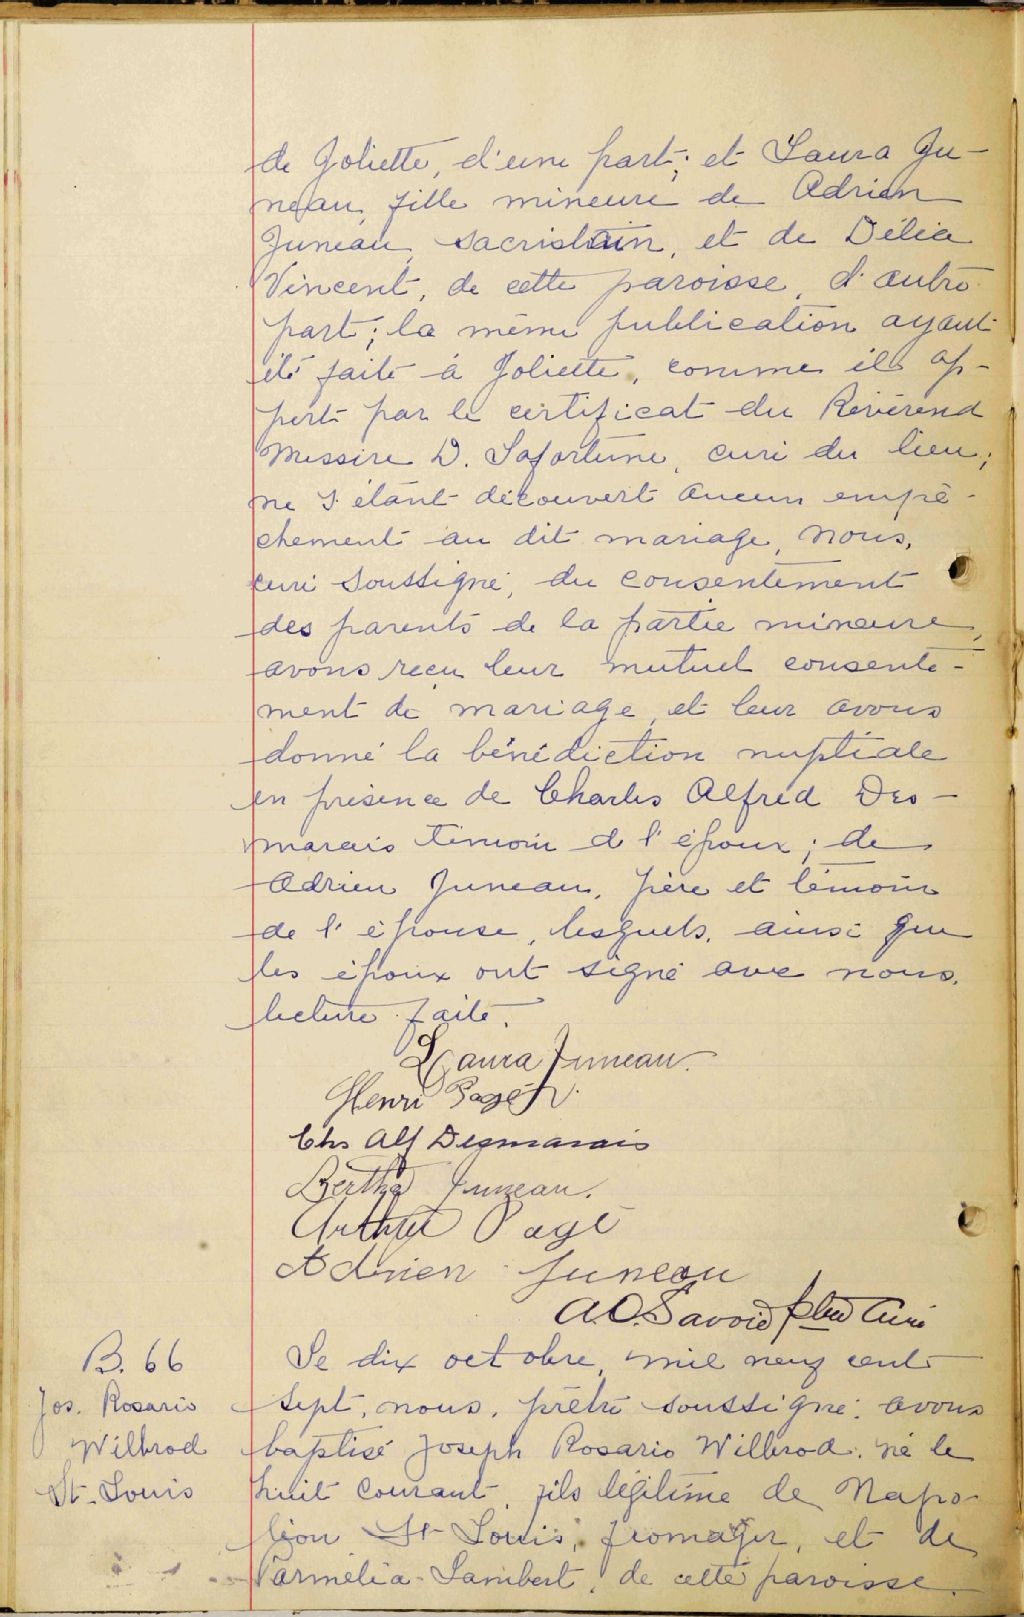 de Joliette, d'une part; et Laura Ju-
neau, fille mineure de Adrien
Juneau, sacristain, et de Délia
Vincent, de cette paroisse, d'autre
part; la même publication ayant
été faite à Joliette, comme il ap-
pert par le certificat du Révérend
Messire D. Lafortune, curé du lieu;
ne s'étant découvert aucun empê-
chement au dit mariage, nous,
curé soussigné, du consentement
des parents de la partie mineure,
avons reçu leur mutuel consente-
ment de mariage, et leur avons
donné la bénédiction nuptiale
en présence de Charles Alfred Des-
marais témoin de l'époux; de
Adrien Juneau, père et témoin
de l'épouse, lesquels, ainsi que
les époux ont signé avec nous.
lecture faite.
Laura Juneau.
Henri Pagé
Chs Alf Desmarais
Bertha Juneau.
Arthur Pagé
Adrien Juneau
A.O. Savoie ptre Curé
B. 66
Jos. Rosario
Wilbrod
St-Louis
Le dix octobre, mil neuf cent
sept, nous, prêtre soussigné, avons
baptisé Joseph Rosario Wilbrod, né le
huit courant, fils légitime de Napo-
léon St-Louis, fromager, et de
Parmélia Lambert, de cette paroisse.